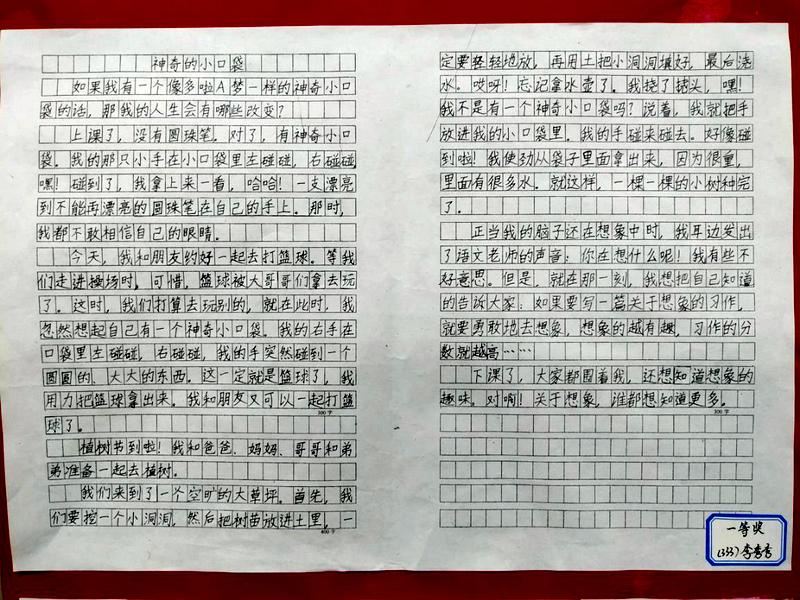 神奇的小口袋
如果我有一个像多啦A梦一样的神奇小口
袋的话，那我的人生会有哪些改变？
上课了，没有圆珠笔。对了，有神奇小口
袋。我的那只小手在小口袋里左碰碰，右碰碰
嘿！碰到了，我拿上来一看，哈哈！一支漂亮
到不能再漂亮的圆珠笔在自己的手上。那时，
我都不敢相信自己的眼睛。
今天，我和朋友约好一起去打篮球。等我
们走进操场时，可惜，篮球被大哥哥们拿去玩
了。这时，我们打算去玩别的，就在此时，我
忽然想起自己有一个神奇小口袋。我的右手在
口袋里左碰碰，右碰碰，我的手突然碰到一个
圆圆的、大大的东西。这一定就是篮球了，我
用力把篮球拿出来。我和朋友又可以一起打篮
300字
球了。
植树节到啦！我和爸爸、妈妈、哥哥和弟
弟准备一起去植树。
我们来到了一个空旷的大草坪。首先，我
们要挖一个小洞洞，然后把树苗放进土里，一
400字
定要轻轻地放，再用土把小洞洞填好，最后浇
水。哎呀！忘记拿水壶了。我挠了挠头，嘿！
我不是有一个神奇小口袋吗？说着，我就把手
放进我的小口袋里。我的手碰来碰去。好像碰
到啦！我使劲从袋子里面拿出来，因为很重，
里面有很多水。就这样，一棵一棵的小树种完
了。
正当我的脑子还在想象中时，我耳边发出
了语文老师的声音：你在想什么呢！我有些不
好意思。但是，就在那一刻，我想把自己知道
的告诉大家：如果要写一篇关于想象的习作，
就要勇敢地去想象，想象的越有趣，习作的分
数就越高……
下课了，大家都围着我，还想知道想象的
趣味。对啊！关于想象，谁都想知道更多。
700字
一等奖
(333)李秀秀